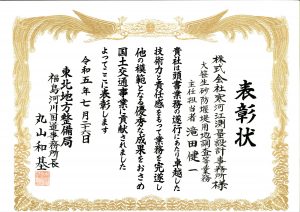 表彰状
株式会社寒河江測量設計事務所様
大笹生砂防堰堤用地調査等業務
主任担当者 滝田健一
貴社は頭書業務の遂行にあたり卓越した
技術力と責任感をもって業務を完遂し
他の模範となる優秀な成果をおさめ
国土交通事業に貢献されました
よってここに表彰します
令和五年七月二十六日
東北地方整備局
福島河川国道事務所長
丸山和基